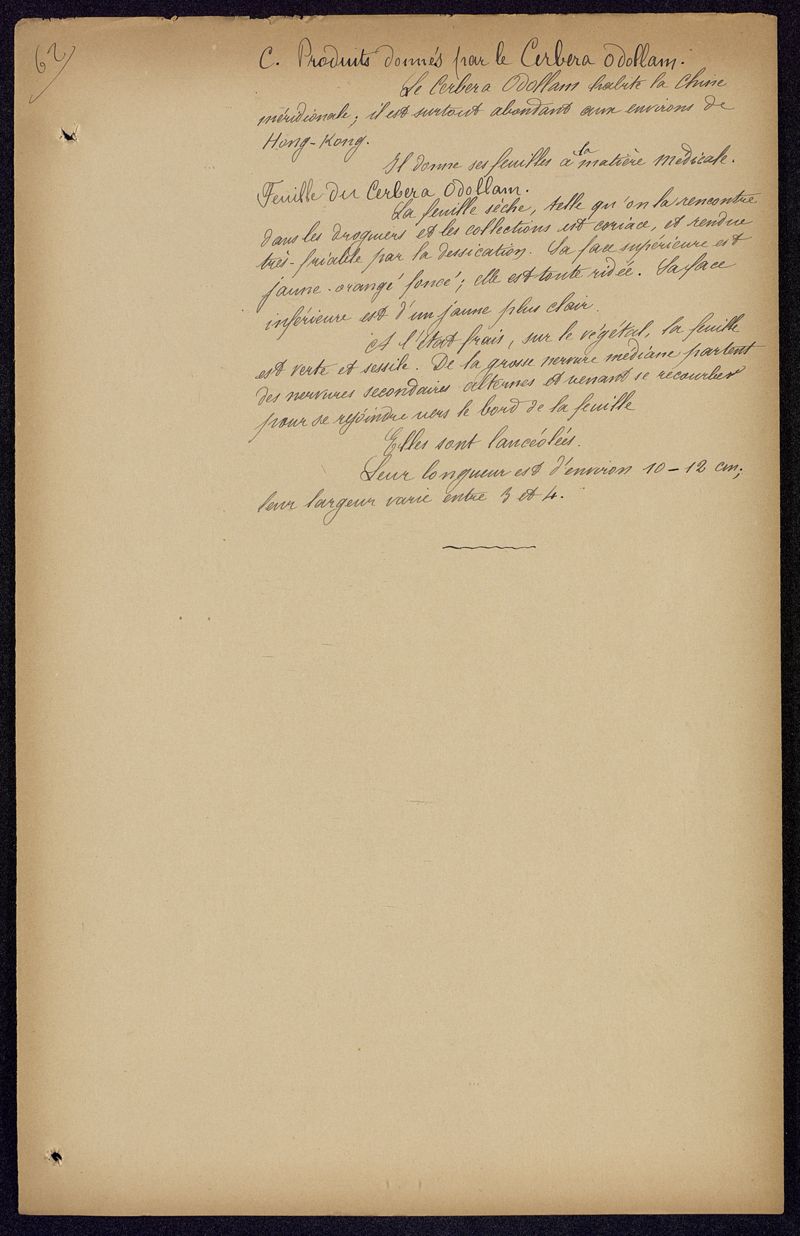 62)
C. Produits donnés par le Cerbera Odollam.
Le Cerbera Odollam habite la Chine
méridionale; il est surtout abondant aux environs de
Hong-Kong.
Il donne ses feuilles à la matière médicale.
Feuille du Cerbera Odollam.
La feuille sèche, telle qu'on la rencontre
dans les droguiers et les collections est coriace, et rendue
très-friable par la dessication. Sa face supérieure est
jaune-orangé foncé; elle est toute ridée. Sa face
inférieure est d'un jaune plus clair.
A l'état frais, sur le végétal, la feuille
est verte et sessile. De la grosse nervure médiane partent
des nervures secondaires alternes et venant se recourber
pour se rejoindre vers le bord de la feuille
Elles sont lancéolées.
Leur longueur est d'environ 10-12 cm;
leur largeur varie entre 3 et 4.